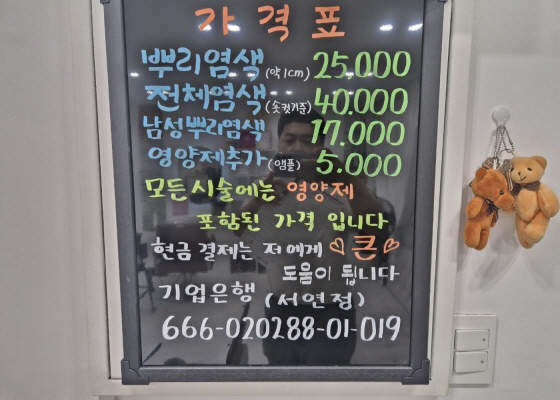 가격표
뿌리염색(약1cm) 25.000
전체염색(숏컷기준) 40.000
남성뿌리염색 17.000
영양제추가(앰플) 5.000
모든시술에는 영양제
포함된 가격 입니다
현금 결제는 저에게 ♡큰♡
도움이 됩니다
기업은행 (서연정)
666-020288-01-019